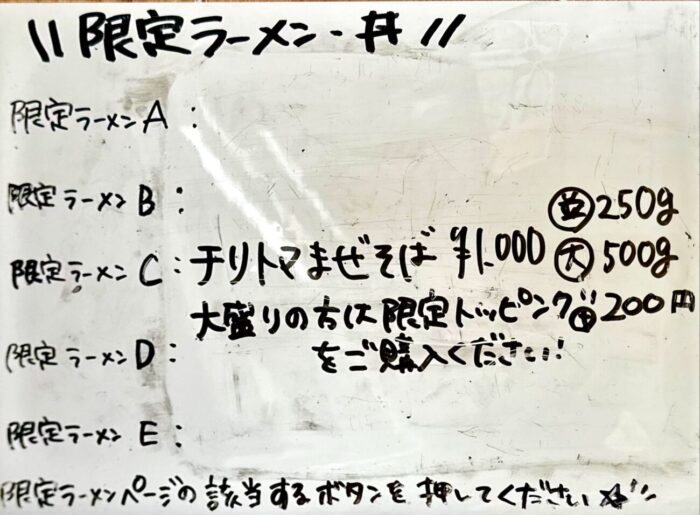 \\ 限定ラーメン・丼 //
限定ラーメン A :
限定ラーメン B :
並 250g
限定ラーメン C : チリトマまぜそば ¥1,000 大 500g
大盛りの方は限定トッピング 200円
をご購入ください!
限定ラーメン D :
限定ラーメン E :
限定ラーメンページの該当するボタンを押してください☆